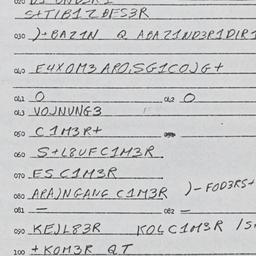 S+TIB1Z BES3R
030 )+BAZ1N Q ABAZ1ND3R1DIR1
040 E4XOM3 APO.SG1COJG+
041 O 042 O
043 VOJNUNG3
050 C1M3R+
060 S+L8UFC1M3R
070 ESC1M3R
080 APA)NGANG C1M3R )-FOD3RS+
081 — 082 —
090 KEJL83R KOLC1M3R
100 +KOM3R QT